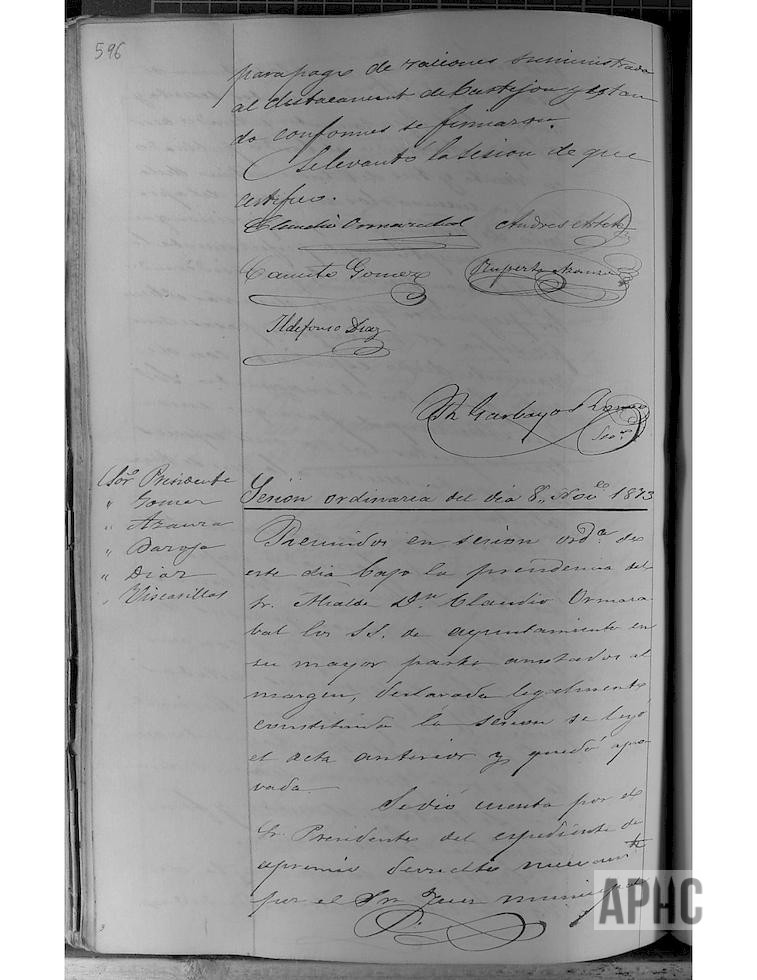 596
para pago de raciones suministrada
al destacament de Castejon y estan
do conformes se firmaron.
Se levantó la sesion de que
certifico.
Claudio Ormazabal Andres
Canuto Gomez Ruperto Azaura
Ildefonso Diaz
Garbayo
Sreo.
Sor. Presidente
" Gomez
" Azaura
" Baroja
" Diaz
" Viscasillas
Sesion ordinaria del dia 8,, Nove. 1873
Reunidos en sesion ordª. de
este dia bajo la presidencia del
Sr. Alcalde Dn. Claudio Ormaza
bal los SS. de ayuntamiento en
su mayor parte anotados al
margen, declarada legalmente
constituida la sesion se leyó
el acta anterior y quedó apro
vada.
Se dió cuenta por el
Sr. Presidente del expediente de
apremio
por el Sr. Juez municipal
APHC